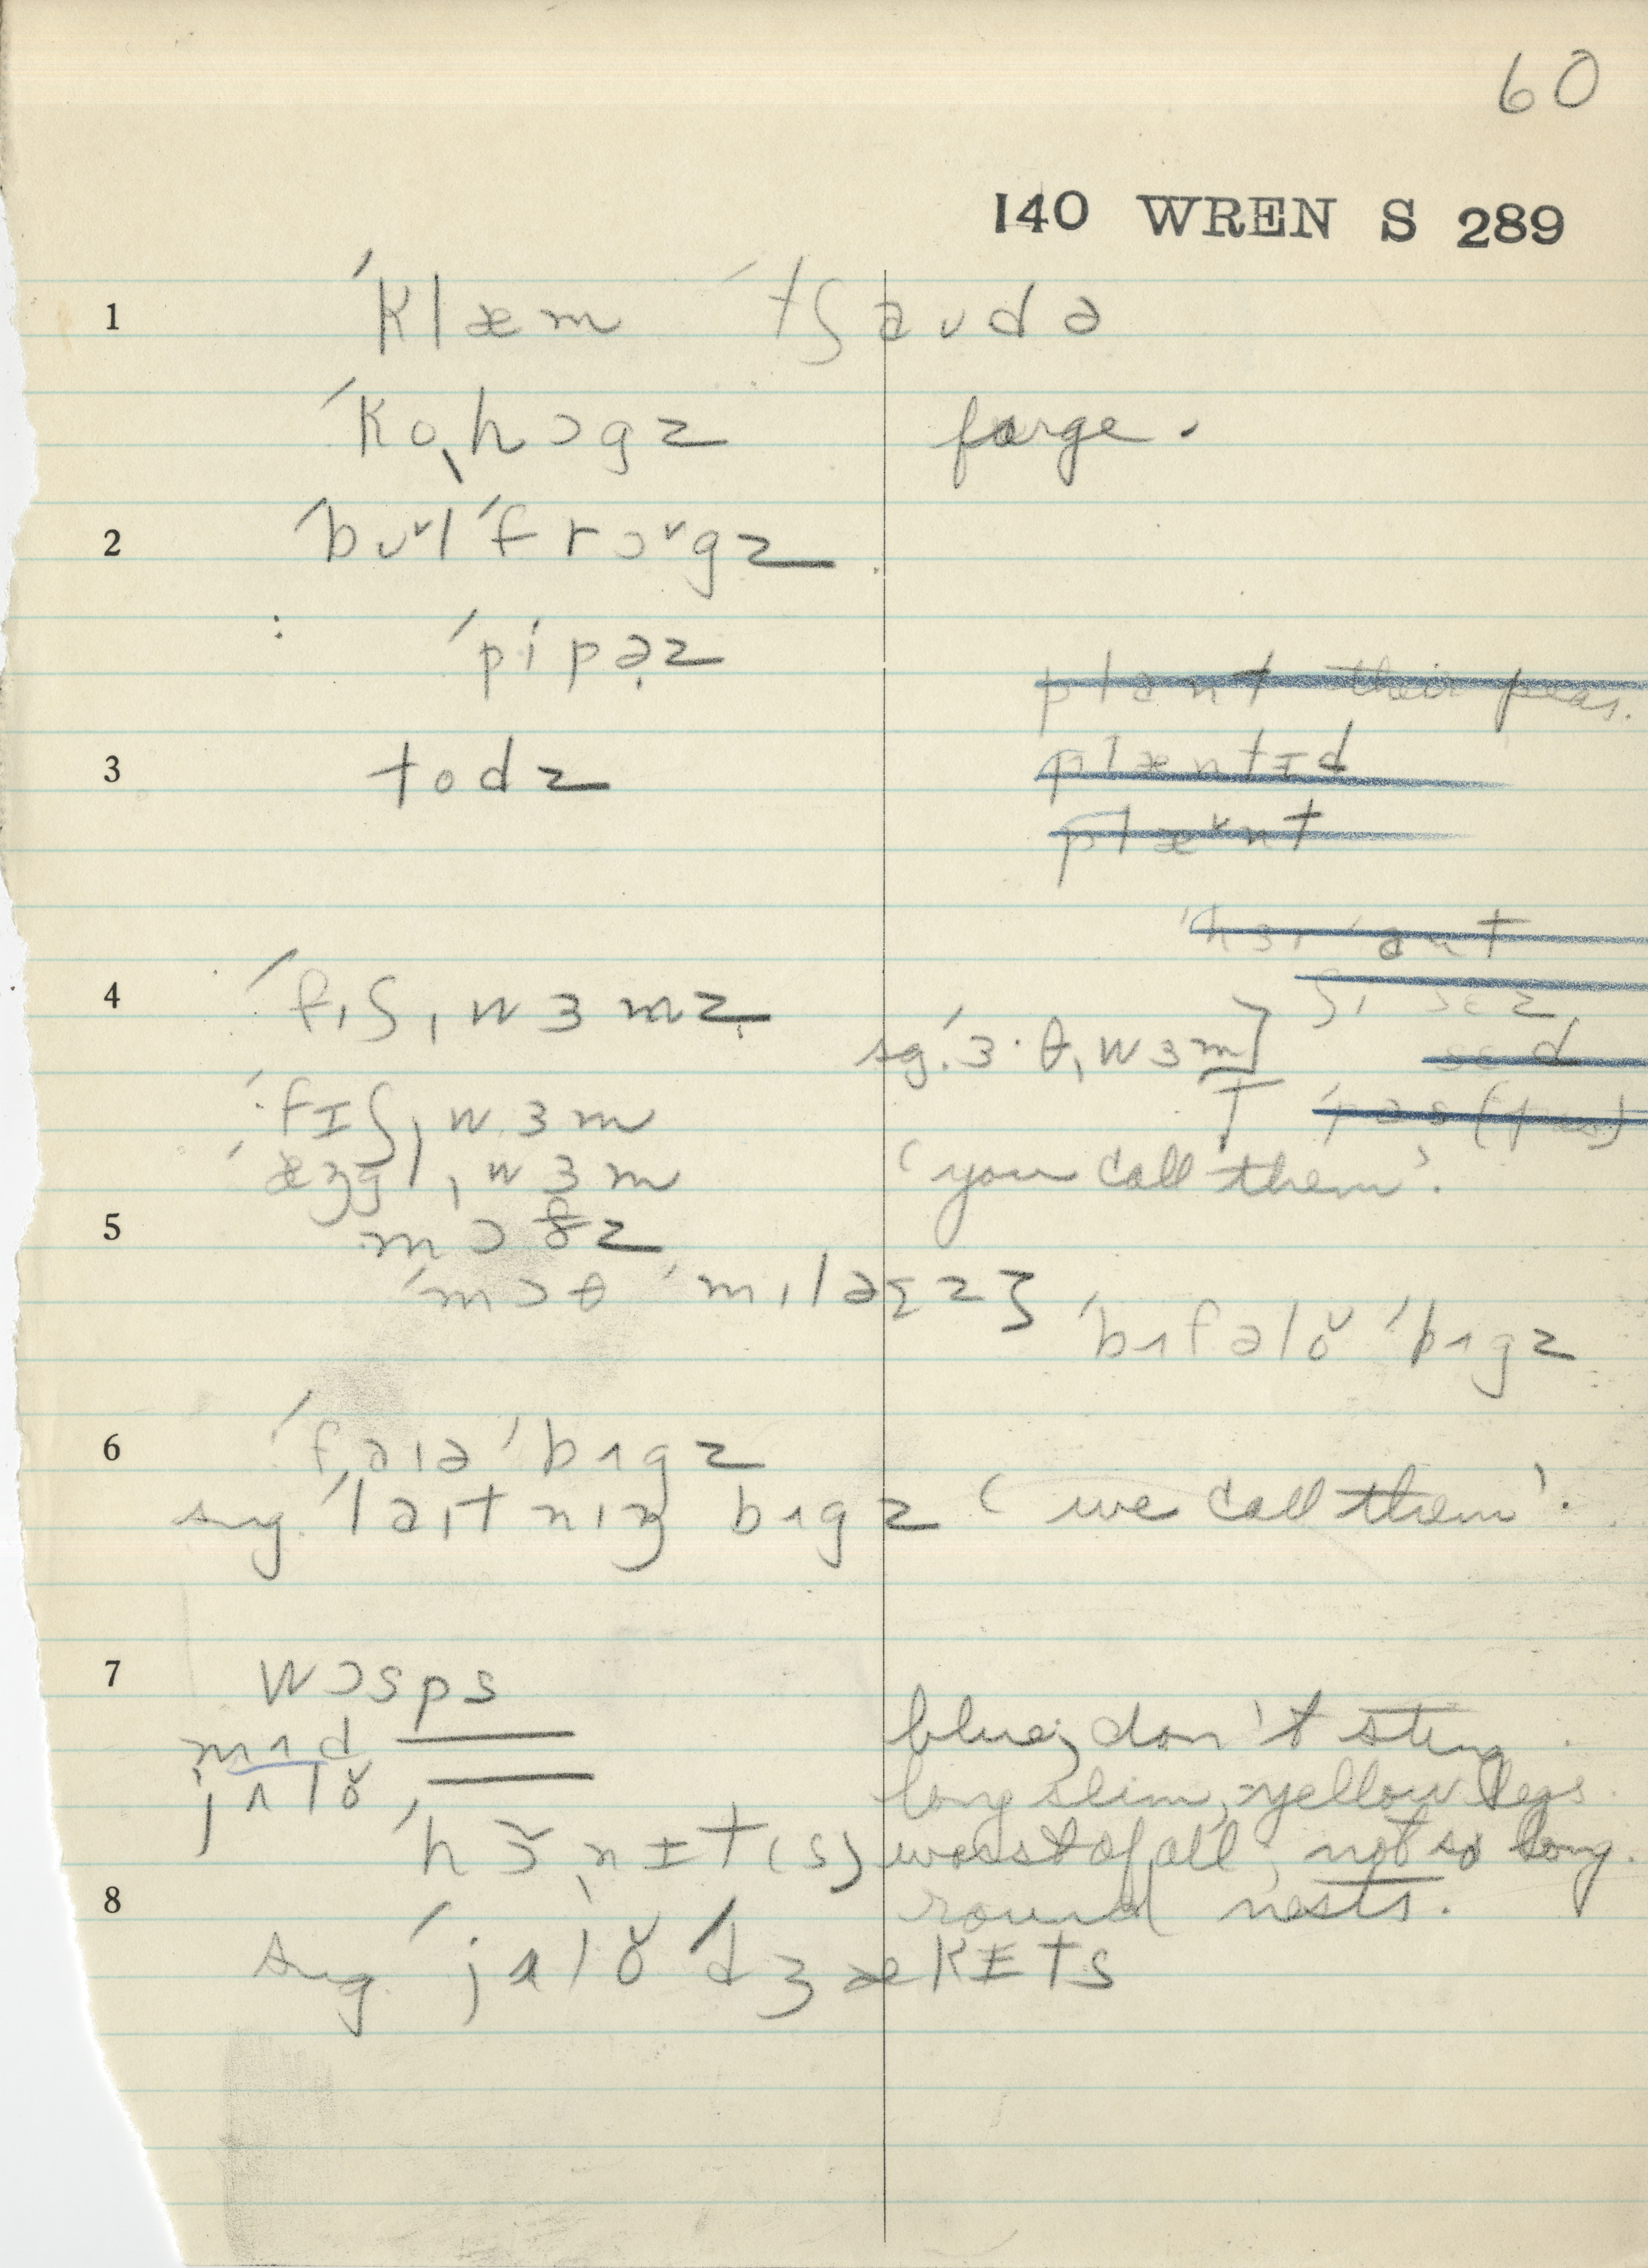 60
140 WREN S 289
1 ˈklæm ˈtʃaʊdə
ˈkoˌhɔgz farge.
2 ˈbʊ˅l ˈfrɔ˅gz
: ˈpipə̣z
plant their peas.
3 todz plæntɪd
plæ˅nt
ʃɪ sɛz
4 ˈfɪʃˌwɜmz sg. ˈɜ·θˌwɜm]
sɛd
ˈfɪʃˌwɜm
ˈæŋglˌwɜm ‘you call them’.
5 mɔðz
ˈmɔθ ˈmɪləɾz}
ˈbʌfəlŏ ˈbʌgz
6 ˈfaɪə ˈbʌgz
sug. ˈlaɪtnɪŋ bʌgz ‘we call them’.
7 wɔsps
mʌd —— blue, don't sting.
jʌlŏ —— long slim, yellow legs.
ˈhɔ̆ˌnɪt(s) worst of all, not so long.
8 round nests.
sug. ˈjʌlŏ ˈdʒækɪts